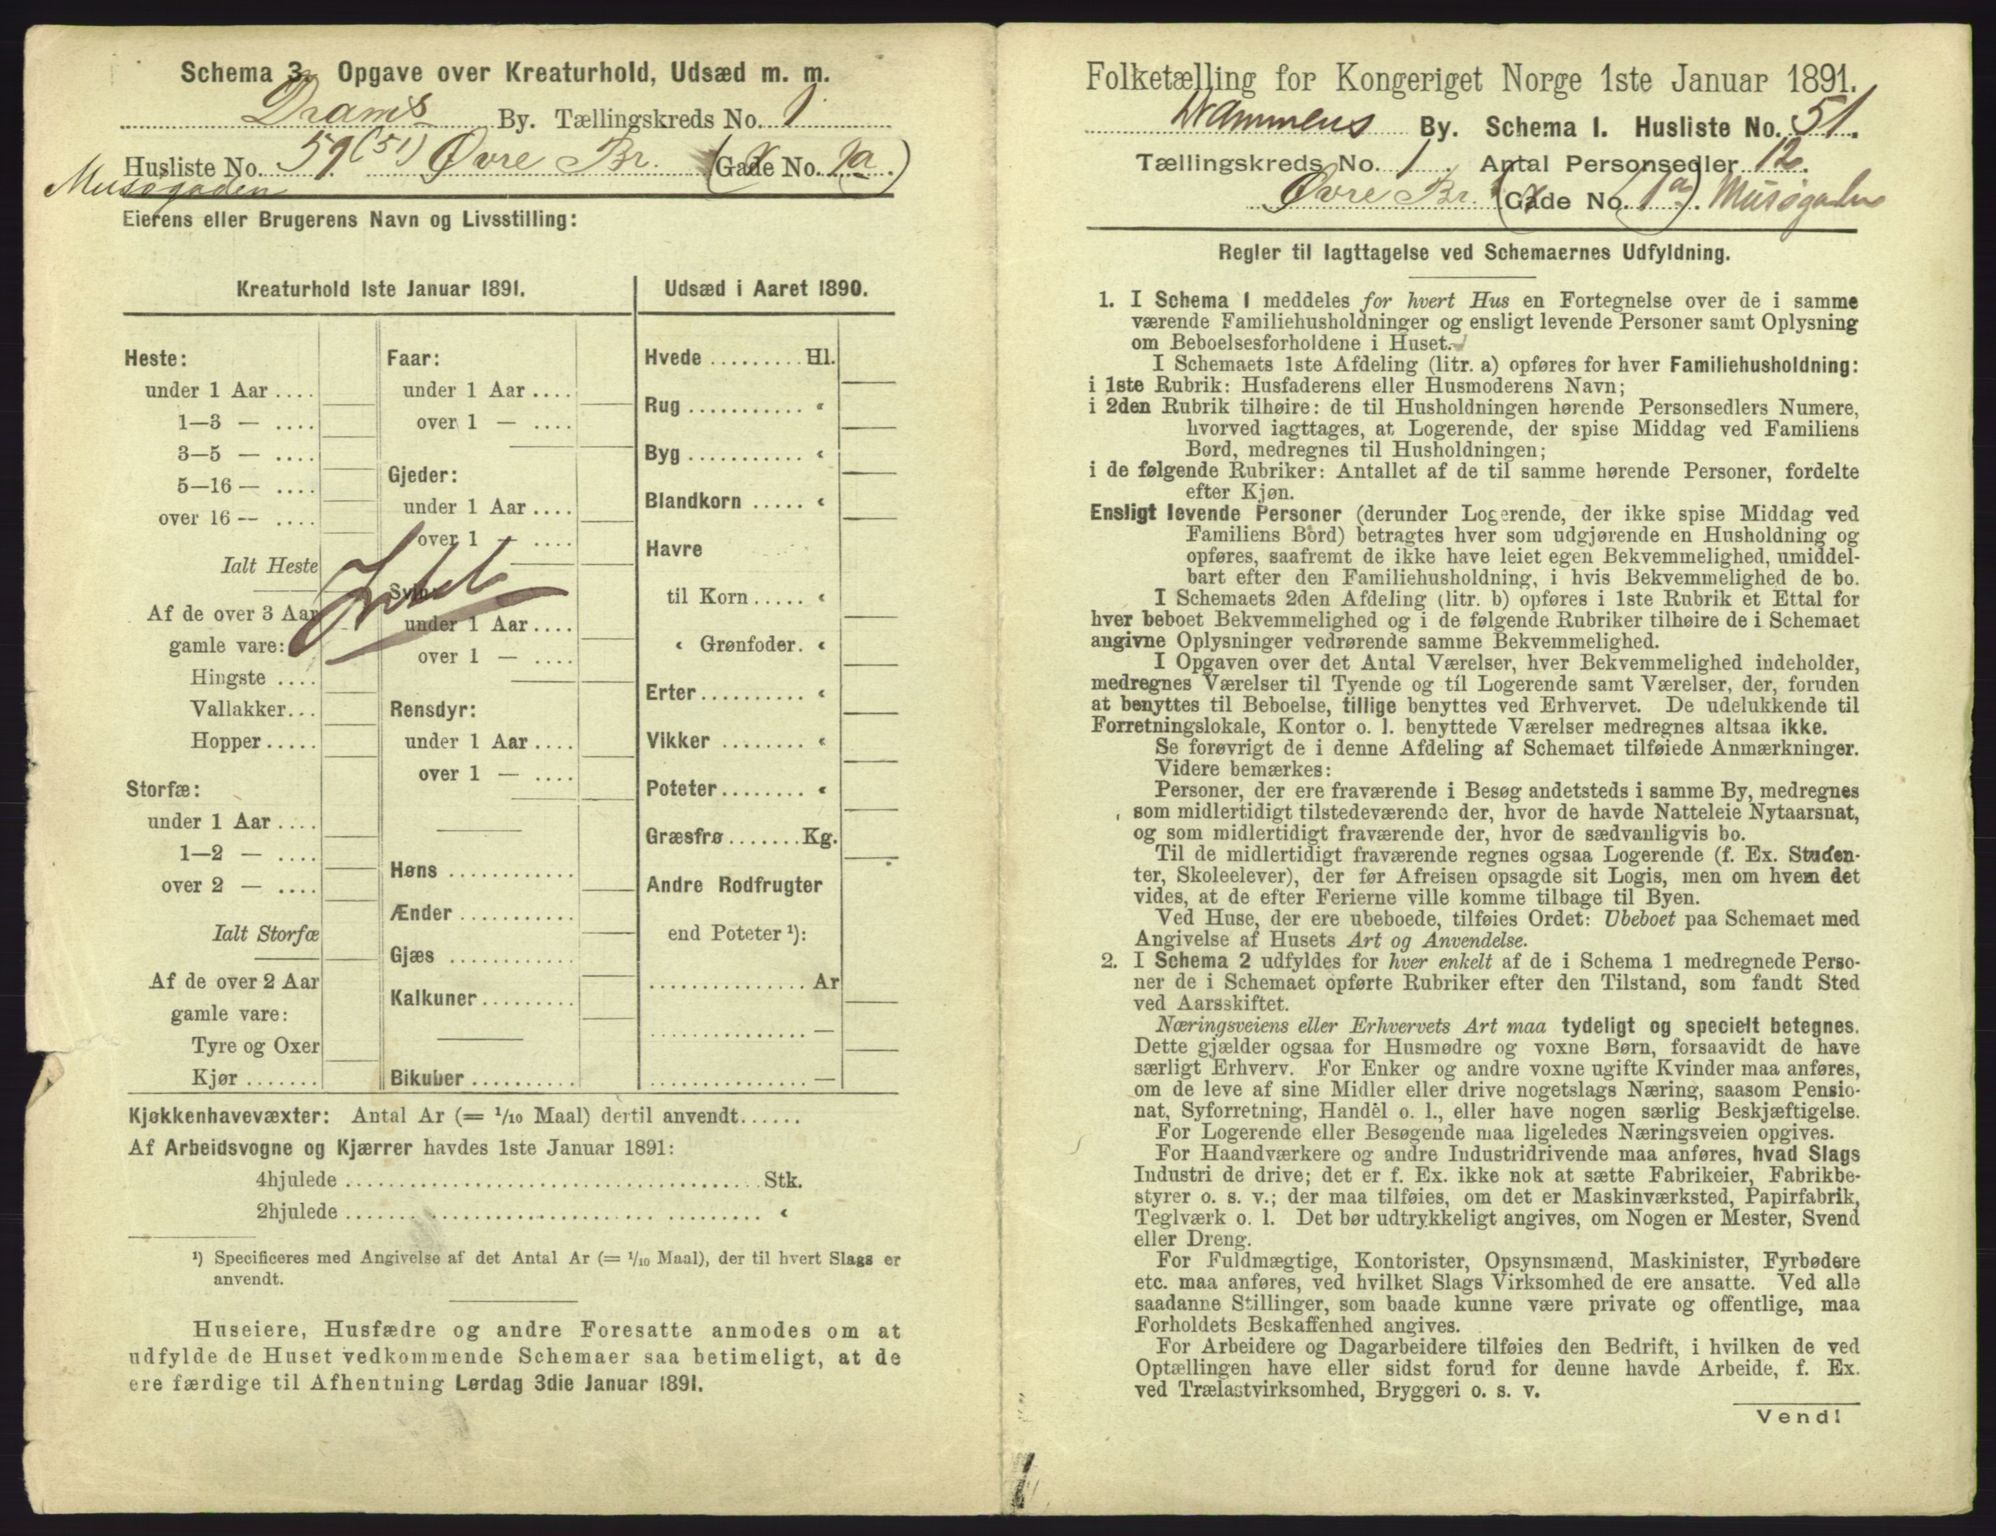 Schema 3. Opgave over Kreaturhold, Udsæd m. m.
Drams By. Tællingskreds No. 1
Husliste No. 59 (51) Øvre Br. (Gade No. 1a)
Musøgaden
Eierens eller Brugerens Navn og Livsstilling:
Kreaturhold 1ste Januar 1891.
Heste:
under 1 Aar ....
1—3 — ....
3—5 — ....
5—16 — ....
over 16 — ....
Ialt Heste
Af de over 3 Aar
gamle vare:
Hingste ....
Vallakker...
Hopper.....
Storfæ:
under 1 Aar ....
1—2 — ....
over 2 — ....
Ialt Storfæ
Af de over 2 Aar
gamle vare:
Tyre og Oxer
Kjør.......
Faar:
under 1 Aar ....
over 1 — ....
Gjeder:
under 1 Aar ....
over 1 — ....
Intet
Svin:
under 1 Aar....
over 1 — ....
Rensdyr:
under 1 Aar....
over 1 — ....
Høns ............
Ænder ...........
Gjæs ............
Kalkuner.........
Bikuber ..........
Udsæd i Aaret 1890.
Hvede ......... Hl.
Rug ........... «
Byg ........... «
Blandkorn ..... «
Havre
til Korn ..... «
« Grønfoder. «
Erter.......... «
Vikker ........ «
Poteter........ «
Græsfrø.......Kg.
Andre Rodfrugter
end Poteter ¹):
............... Ar
............... —
............... —
Kjøkkenhavevæxter: Antal Ar (= 1/10 Maal) dertil anvendt......
Af Arbeidsvogne og Kjærrer havdes 1ste Januar 1891:
4hjulede ........................................ Stk.
2hjulede ........................................ «
¹) Specificeres med Angivelse af det Antal Ar (= 1/10 Maal), der til hvert Slags er
anvendt.
Huseiere, Husfædre og andre Foresatte anmodes om at
udfylde de Huset vedkommende Schemaer saa betimeligt, at de
ere færdige til Afhentning Lørdag 3die Januar 1891.
Folketælling for Kongeriget Norge 1ste Januar 1891.
Drammens By. Schema 1. Husliste No. 51.
Tællingskreds No. 1. Antal Personsedler 12.
Øvre Br. (Gade No. 1a). Musøgaden
Regler til Iagttagelse ved Schemaernes Udfyldning.
1. I Schema 1 meddeles for hvert Hus en Fortegnelse over de i samme
værende Familiehusholdninger og ensligt levende Personer samt Oplysning
om Beboelsesforholdene i Huset.
I Schemaets 1ste Afdeling (litr. a) opføres for hver Familiehusholdning:
i 1ste Rubrik: Husfaderens eller Husmoderens Navn;
i 2den Rubrik tilhøire: de til Husholdningen hørende Personsedlers Numere,
hvorved iagttages, at Logerende, der spise Middag ved Familiens
Bord, medregnes til Husholdningen;
i de følgende Rubriker: Antallet af de til samme hørende Personer, fordelte
efter Kjøn.
Ensligt levende Personer (derunder Logerende, der ikke spise Middag ved
Familiens Bord) betragtes hver som udgjørende en Husholdning og
opføres, saafremt de ikke have leiet egen Bekvemmelighed, umiddel-
bart efter den Familiehusholdning, i hvis Bekvemmelighed de bo.
I Schemaets 2den Afdeling (litr. b) opføres i 1ste Rubrik et Ettal for
hver beboet Bekvemmelighed og i de følgende Rubriker tilhøire de i Schemaet
angivne Oplysninger vedrørende samme Bekvemmelighed.
I Opgaven over det Antal Værelser, hver Bekvemmelighed indeholder,
medregnes Værelser til Tyende og til Logerende samt Værelser, der, foruden
at benyttes til Beboelse, tillige benyttes ved Erhvervet. De udelukkende til
Forretningslokale, Kontor o. l. benyttede Værelser medregnes altsaa ikke.
Se forøvrigt de i denne Afdeling af Schemaet tilføiede Anmærkninger.
Videre bemærkes:
Personer, der ere fraværende i Besøg andetsteds i samme By, medregnes
som midlertidigt tilstedeværende der, hvor de havde Natteleie Nytaarsnat,
og som midlertidigt fraværende der, hvor de sædvanligvis bo.
Til de midlertidigt fraværende regnes ogsaa Logerende (f. Ex. Studen-
ter, Skoleelever), der før Afreisen opsagde sit Logis, men om hvem det
vides, at de efter Ferierne ville komme tilbage til Byen.
Ved Huse, der ere ubeboede, tilføies Ordet: Ubeboet paa Schemaet med
Angivelse af Husets Art og Anvendelse.
2. I Schema 2 udfyldes for hver enkelt af de i Schema 1 medregnede Perso-
ner de i Schemaet opførte Rubriker efter den Tilstand, som fandt Sted
ved Aarsskiftet.
Næringsveiens eller Erhvervets Art maa tydeligt og specielt betegnes.
Dette gjælder ogsaa for Husmødre og voxne Børn, forsaavidt de have
særligt Erhverv. For Enker og andre voxne ugifte Kvinder maa anføres,
om de leve af sine Midler eller drive nogetslags Næring, saasom Pensio-
nat, Syforretning, Handel o. l., eller have nogen særlig Beskjæftigelse.
For Logerende eller Besøgende maa ligeledes Næringsveien opgives.
For Haandværkere og andre Industridrivende maa anføres, hvad Slags
Industri de drive; det er f. Ex. ikke nok at sætte Fabrikeier, Fabrikbe-
styrer o. s. v.; der maa tilføies, om det er Maskinværksted, Papirfabrik,
Teglværk o. l. Det bør udtrykkeligt angives, om Nogen er Mester, Svend
eller Dreng.
For Fuldmægtige, Kontorister, Opsynsmænd, Maskinister, Fyrbødere
etc. maa anføres, ved hvilket Slags Virksomhed de ere ansatte. Ved alle
saadanne Stillinger, som baade kunne være private og offentlige, maa
Forholdets Beskaffenhed angives.
For Arbeidere og Dagarbeidere tilføies den Bedrift, i hvilken de ved
Optællingen have eller sidst forud for denne havde Arbeide, f. Ex.
ved Trælastvirksomhed, Bryggeri o. s. v.
Vend!